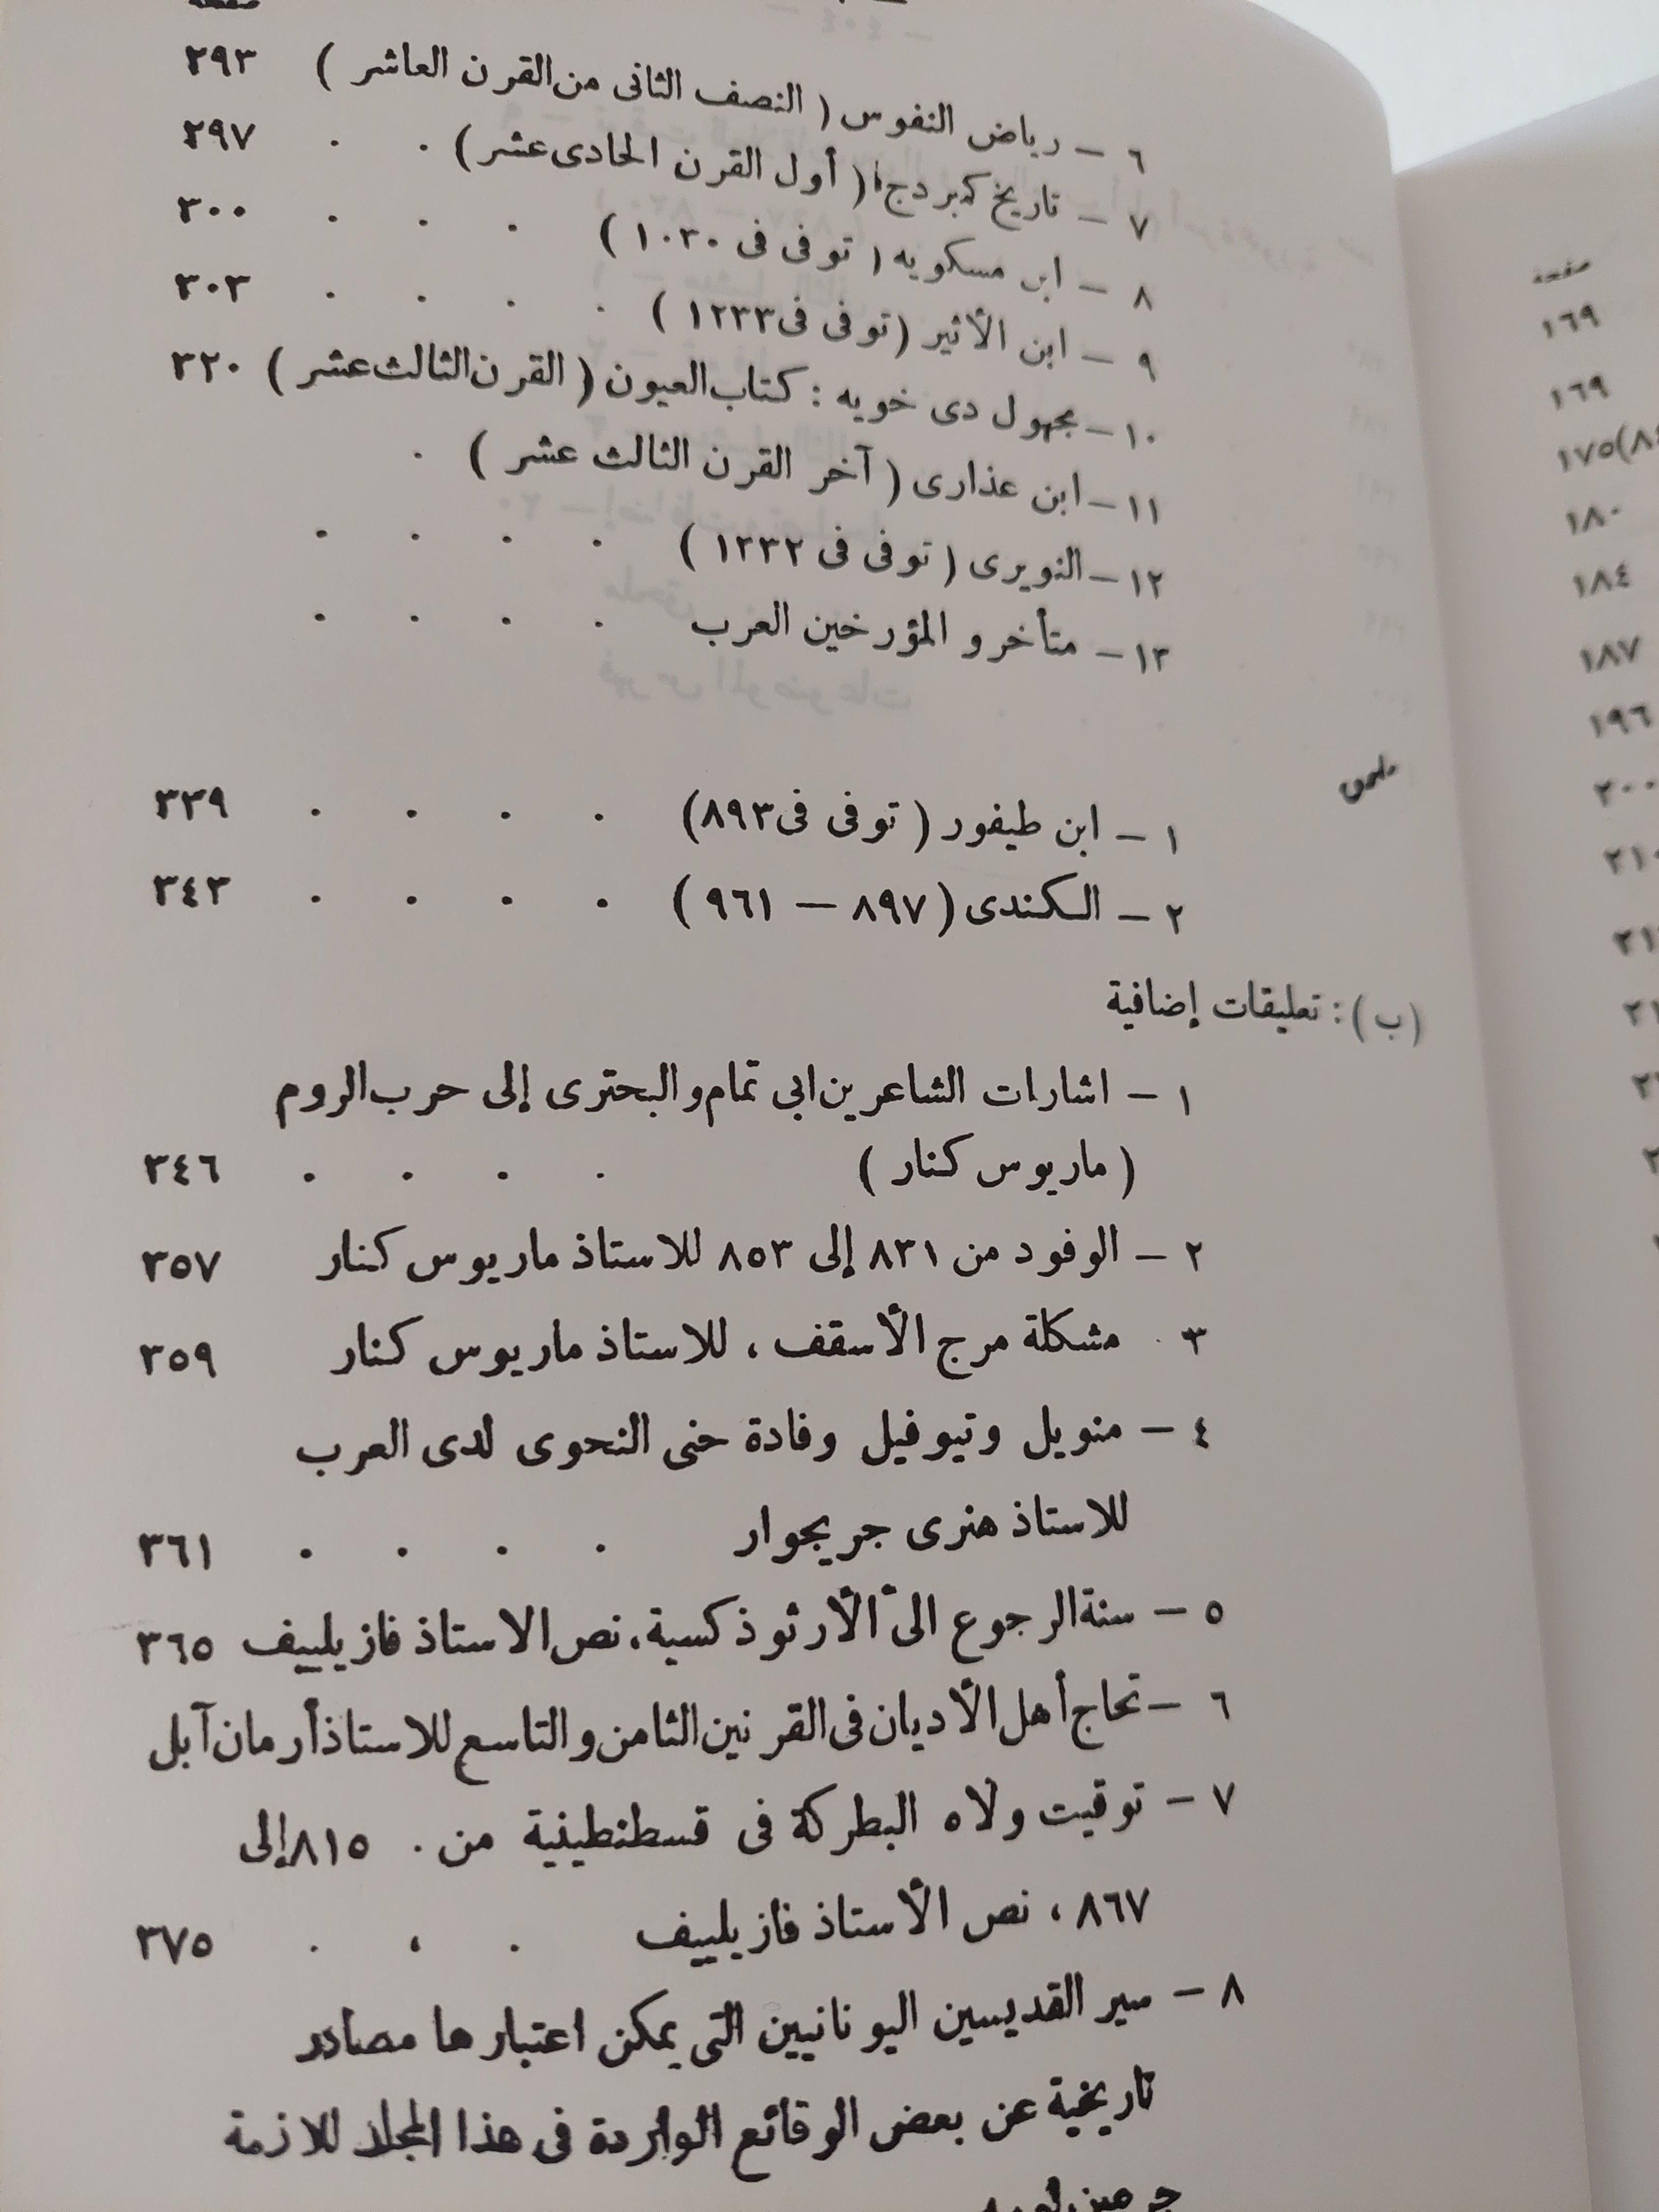 ٦ – رياض النفوس ( النصف الثانى من القرن العاشر ) ٢٩٣
٧ – تاريخ كمبردج ( أول القرن الحادى عشر ) . . ٢٩٧
٨ – ابن مسكويه ( توفى فى ١٠٣٠ ) . . . ٣٠٠
٩ – ابن الأثير ( توفى فى ١٢٣٣ ) . . . . ٣٠٣
١٠ – مجهول دى خويه : كتاب العيون ( القرن الثالث عشر ) ٣٢٠
١١ – ابن عذارى ( آخر القرن الثالث عشر ) .
١٢ – النويرى ( توفى فى ١٢٣٢ ) . . . .
١٣ – متأخرو المؤرخين العرب . . . .
ملحق
١ – ابن طيفور ( توفى فى ٨٩٣ ) . . . . ٣٣٩
٢ – الكندى ( ٨٩٧ – ٩٦١ ) . . . . ٣٤٣
(ب) : تعليقات إضافية
١ – اشارات الشاعرين ابى تمام والبحترى إلى حرب الروم
( ماريوس كنار ) . . . . ٣٤٦
٢ – الوفود من ٨٣١ إلى ٨٥٣ للاستاذ ماريوس كنار ٣٥٧
٣ . مشكلة مرج الأسقف ، للاستاذ ماريوس كنار ٣٥٩
٤ – منويل وتيوفيل وفادة حنى النحوى لدى العرب
للاستاذ هنرى جريجوار . . . . ٣٦١
٥ – سنة الرجوع الى الأرثوذكسية ، نص الاستاذ فازيلييف ٣٦٥
٦ – تحاج أهل الأديان فى القرنين الثامن والتاسع للاستاذ أرمان آبل
٧ – توقيت ولاه البطركة فى قسطنطينية من . ٨١٥ إلى
٨٦٧ ، نص الأستاذ فازيلييف . ، . ٣٧٥
٨ – سير القديسين اليونانيين التى يمكن اعتبارها مصادر
تاريخية عن بعض الوقائع الواردة فى هذا المجلد للازمة
صفحة
١٦٩
١٦٩
١٧٥
١٨٠
١٨٤
١٨٧
١٩٦
٢٠٠